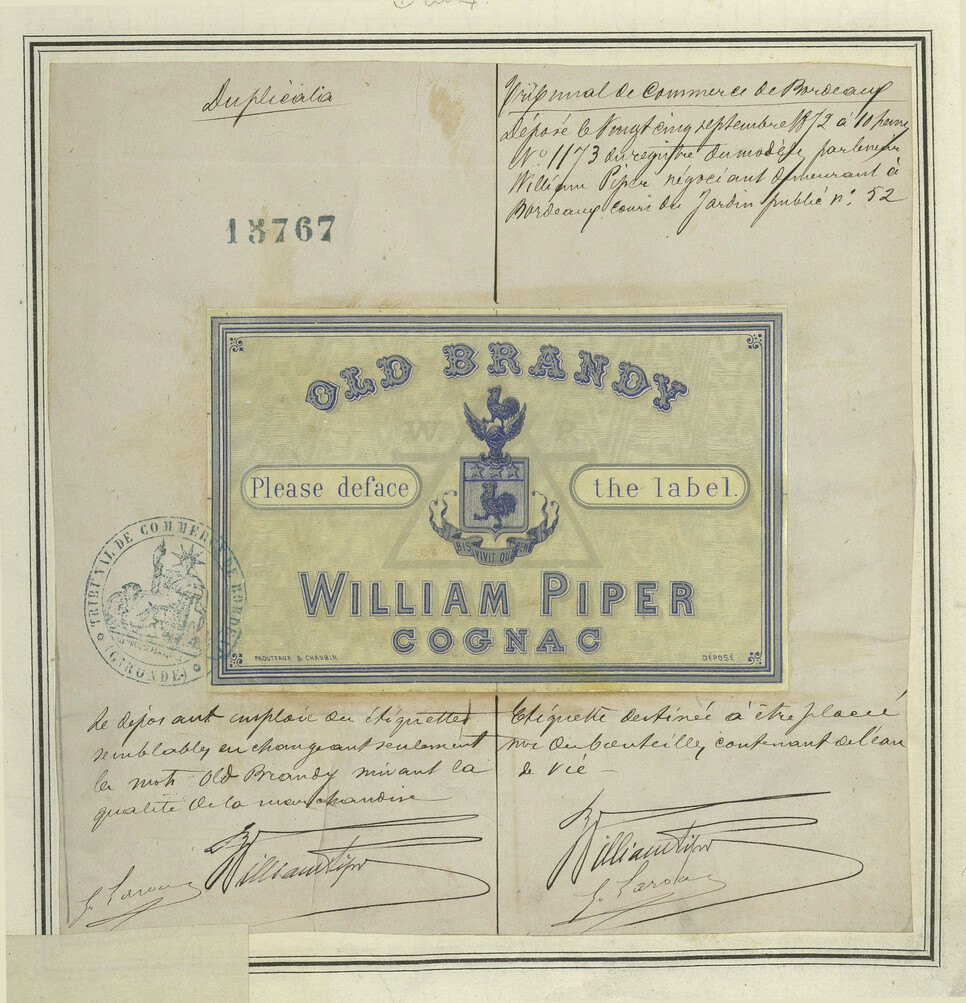 Duplicatia
Tribunal de Commerce de Bordeaux
Déposé le Vingt cinq septembre 1872 à 10 heures
N° 1173 du registre du modèle par
William Piper négociant demeurant à
Bordeaux cours du Jardin public n° 52
13767
OLD BRANDY
W. P.
Please deface
the label.
BIS VIVIT QUI BENE
WILLIAM PIPER
COGNAC
PROUTEAUX & CHAUBIN
DÉPOSÉ
TRIBUNAL DE COMMERCE DE BORDEAUX
(GIRONDE)
Le déposant emploie des étiquettes
semblables en changeant seulement
les mots Old Brandy suivant la
qualité de la marchandise
Etiquette destinée à être placée
sur des bouteilles contenant de l'eau
de vie
William Piper
William Piper